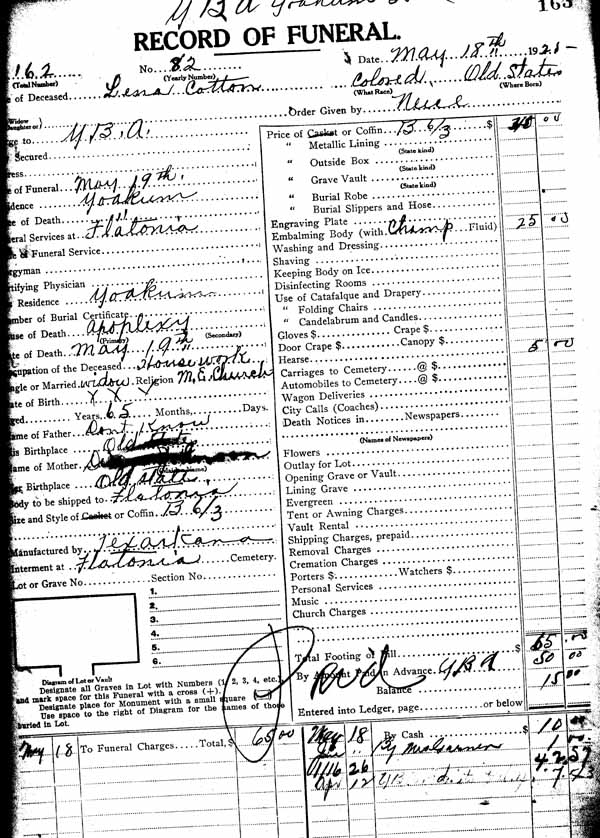 Y B A Graham
163
RECORD OF FUNERAL.
162 No. 82 Date May 18th 1921
(Total Number) (Yearly Number)
e of Deceased Lena Cottom Colored Old States
(What Race) (Where Born)
Widow
Daughter or) Order Given by Niece
ge to Y.B.A.
Secured
ress
e of Funeral May 19th.
idence Yoakum
e of Death "
eral Services at Flatonia
e & Funeral Service
rgyman
rtifying Physician
Residence Yoakum
mber of Burial Certificate
use of Death Apoplexy
(Primary) (Secondary)
ate of Death May 19th
cupation of the Deceased Housework
ngle or Married widow Religion M.E. Church
ate of Birth x x
ged Years 65 Months Days.
ame of Father Dont Know
is Birthplace Old State
ame of Mother
er Birthplace Old State
ody to be shipped to Flatonia
ize and Style of Casket or Coffin 13 6/3
Manufactured by Texarkana
nterment at Flatonia Cemetery.
Lot or Grave No. Section No.
1.
2.
3.
4.
5.
6.
Diagram of Lot or Vault
Designate all Graves in Lot with Numbers (1, 2, 3, 4, etc.)
and mark space for this Funeral with a cross (+).
Designate place for Monument with a small square
Use space to the right of Diagram for the names of those
buried in Lot.
May 18 To Funeral Charges Total, $ 65 00
Price of Casket or Coffin 13 6/3 $ 00
" Metallic Lining
(State kind)
" Outside Box
(State kind)
" Grave Vault
(State kind)
" Burial Robe
" Burial Slippers and Hose
Engraving Plate
Embalming Body (with Champ Fluid) 25 00
Washing and Dressing
Shaving
Keeping Body on Ice
Disinfecting Rooms
Use of Catafalque and Drapery
" Folding Chairs
" Candelabrum and Candles
Gloves $ Crape $
Door Crape $ Canopy $
Hearse 5 00
Carriages to Cemetery @ $
Automobiles to Cemetery @ $
Wagon Deliveries
City Calls (Coaches)
Death Notices in Newspapers
(Names of Newspapers)
Flowers
Outlay for Lot
Opening Grave or Vault
Lining Grave
Evergreen
Tent or Awning Charges
Vault Rental
Shipping Charges, prepaid
Removal Charges
Cremation Charges
Porters $ Watchers $
Personal Services
Music
Church Charges
Total Footing of Bill $ 65 00
By Amount Paid in Advance Y.B.A 50 00
Balance 15 00
Paid
Entered into Ledger, page or below
May 18 By Cash $ 10 00
" By Mrs Garner 1 00
26 42 57
Apr 12 7 43